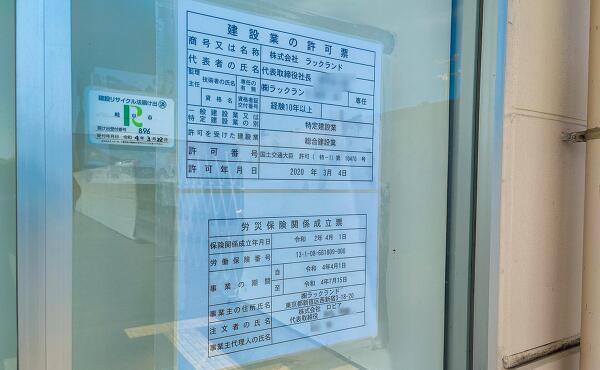 建設業の許可票
商号又は名称 株式会社 ラックランド
代表者の氏名 代表取締役社長
主任 技術者の氏名 専任の有無 ㈱ラックラン 専任
資格名 資格者証交付番号 経験10年以上
一般建設業又は特定建設業の別 特定建設業
許可を受けた建設業 総合建設業
許可番号 国土交通大臣 許可(特-1)第 10470 号
許可年月日 2020 年 3月 4日
建設リサイクル法届け出済
R
届け出受付番号 896
受付年月日 令和 4年3月22日
労災保険関係成立票
保険関係成立年月日 令和 2年4月 1日
労働保険番号 13-1-08-661809-000
事業の期間 自 令和 4年4月1日
至 令和 4年7月15日
事業主の住所氏名 ㈱ラックランド
東京都新宿区西新宿3-18-20
注文者の氏名 株式会社 ロピア
代表取締役
事業主代理人の氏名